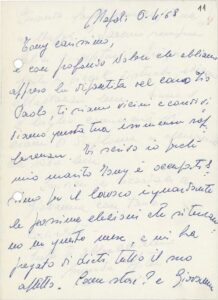 11
Napoli 5-4-68
Tony carissimo,
è con profondo dolore che abbiamo
appreso la dipartita del caro Zio
Paolo, ti siamo vicini e condivi-
diamo questa tua immensa sof-
ferenza. Ti scrivo io perché
mio marito Tony è occupatis-
simo per il lavoro riguardante
le prossime elezioni che si terran-
no in questo mese, e mi ha
pregato di dirti tutto il suo
affetto. Come stai? e Giovanni